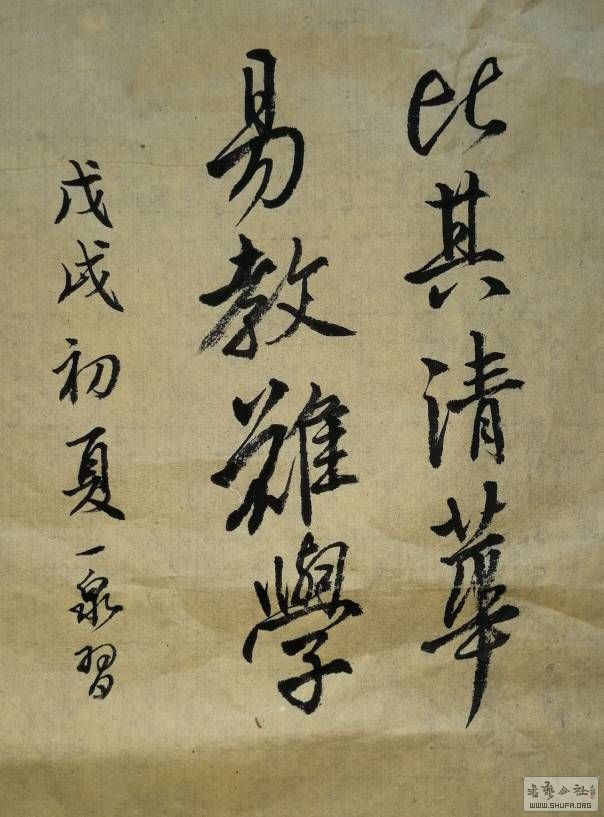 比其清華
易教難學
戊戌初夏一泉習
書藝公社
WWW.SHUFA.ORG